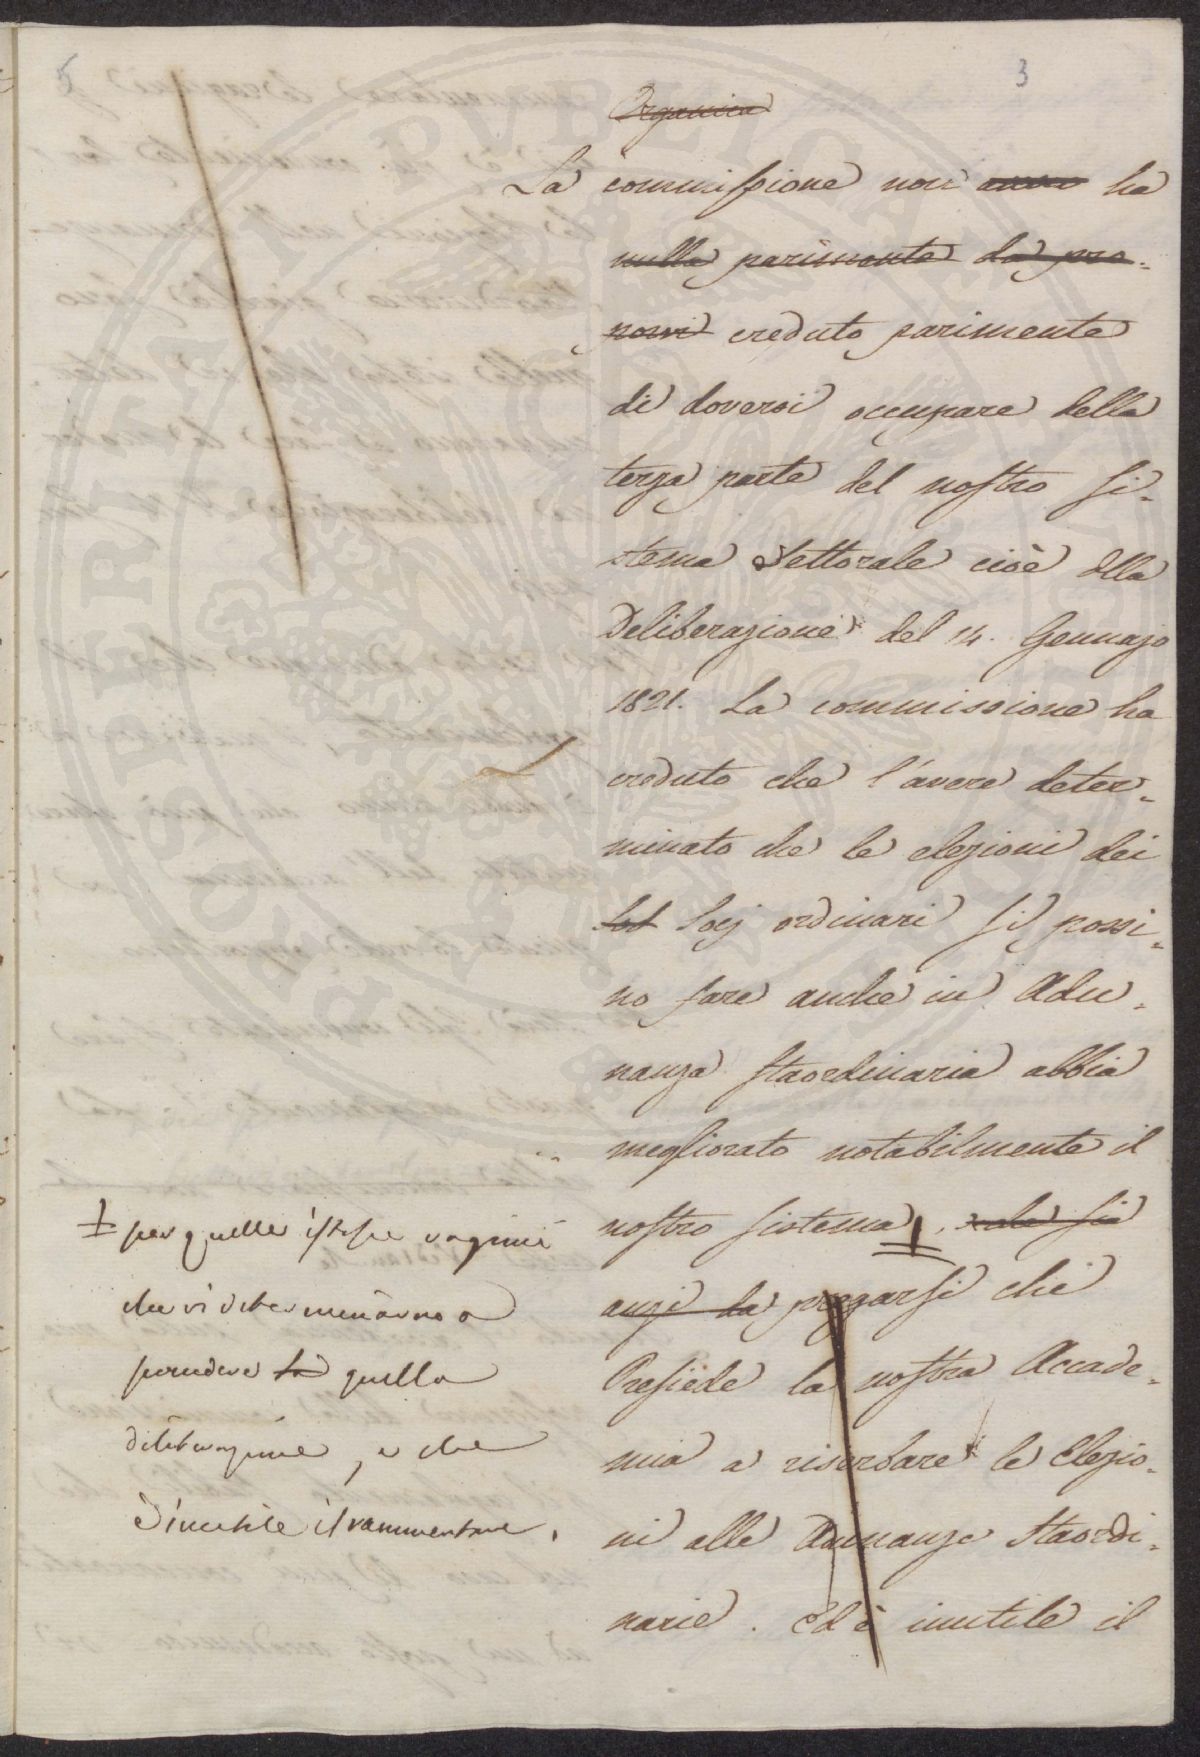 5
3
Organica
La commissione non ha
nulla parimente da pro-
porvi creduto parimente
di doversi occupare della
terza parte del nostro si-
stema Elettorale cioè della
Deliberazione del 14. Gennajo
1821. La commissione ha
creduto che l'avere deter-
minato che le elezioni dei
Socj ordinari si possi-
no fare anche in Adu-
nanza staordinaria abbia
megliorato notabilmente il
nostro sistema, che sia
anzi da pregarsi chi
Presiede la nostra Accade-
mia a riserbare le Elezio-
ni alle Adunanze Staordi-
narie. Ed è inutile il
per quelle istesse ragioni
che vi determinarono a
prendere quella
diliberazione, e che
è inutile il rammentare.
PVBLICA